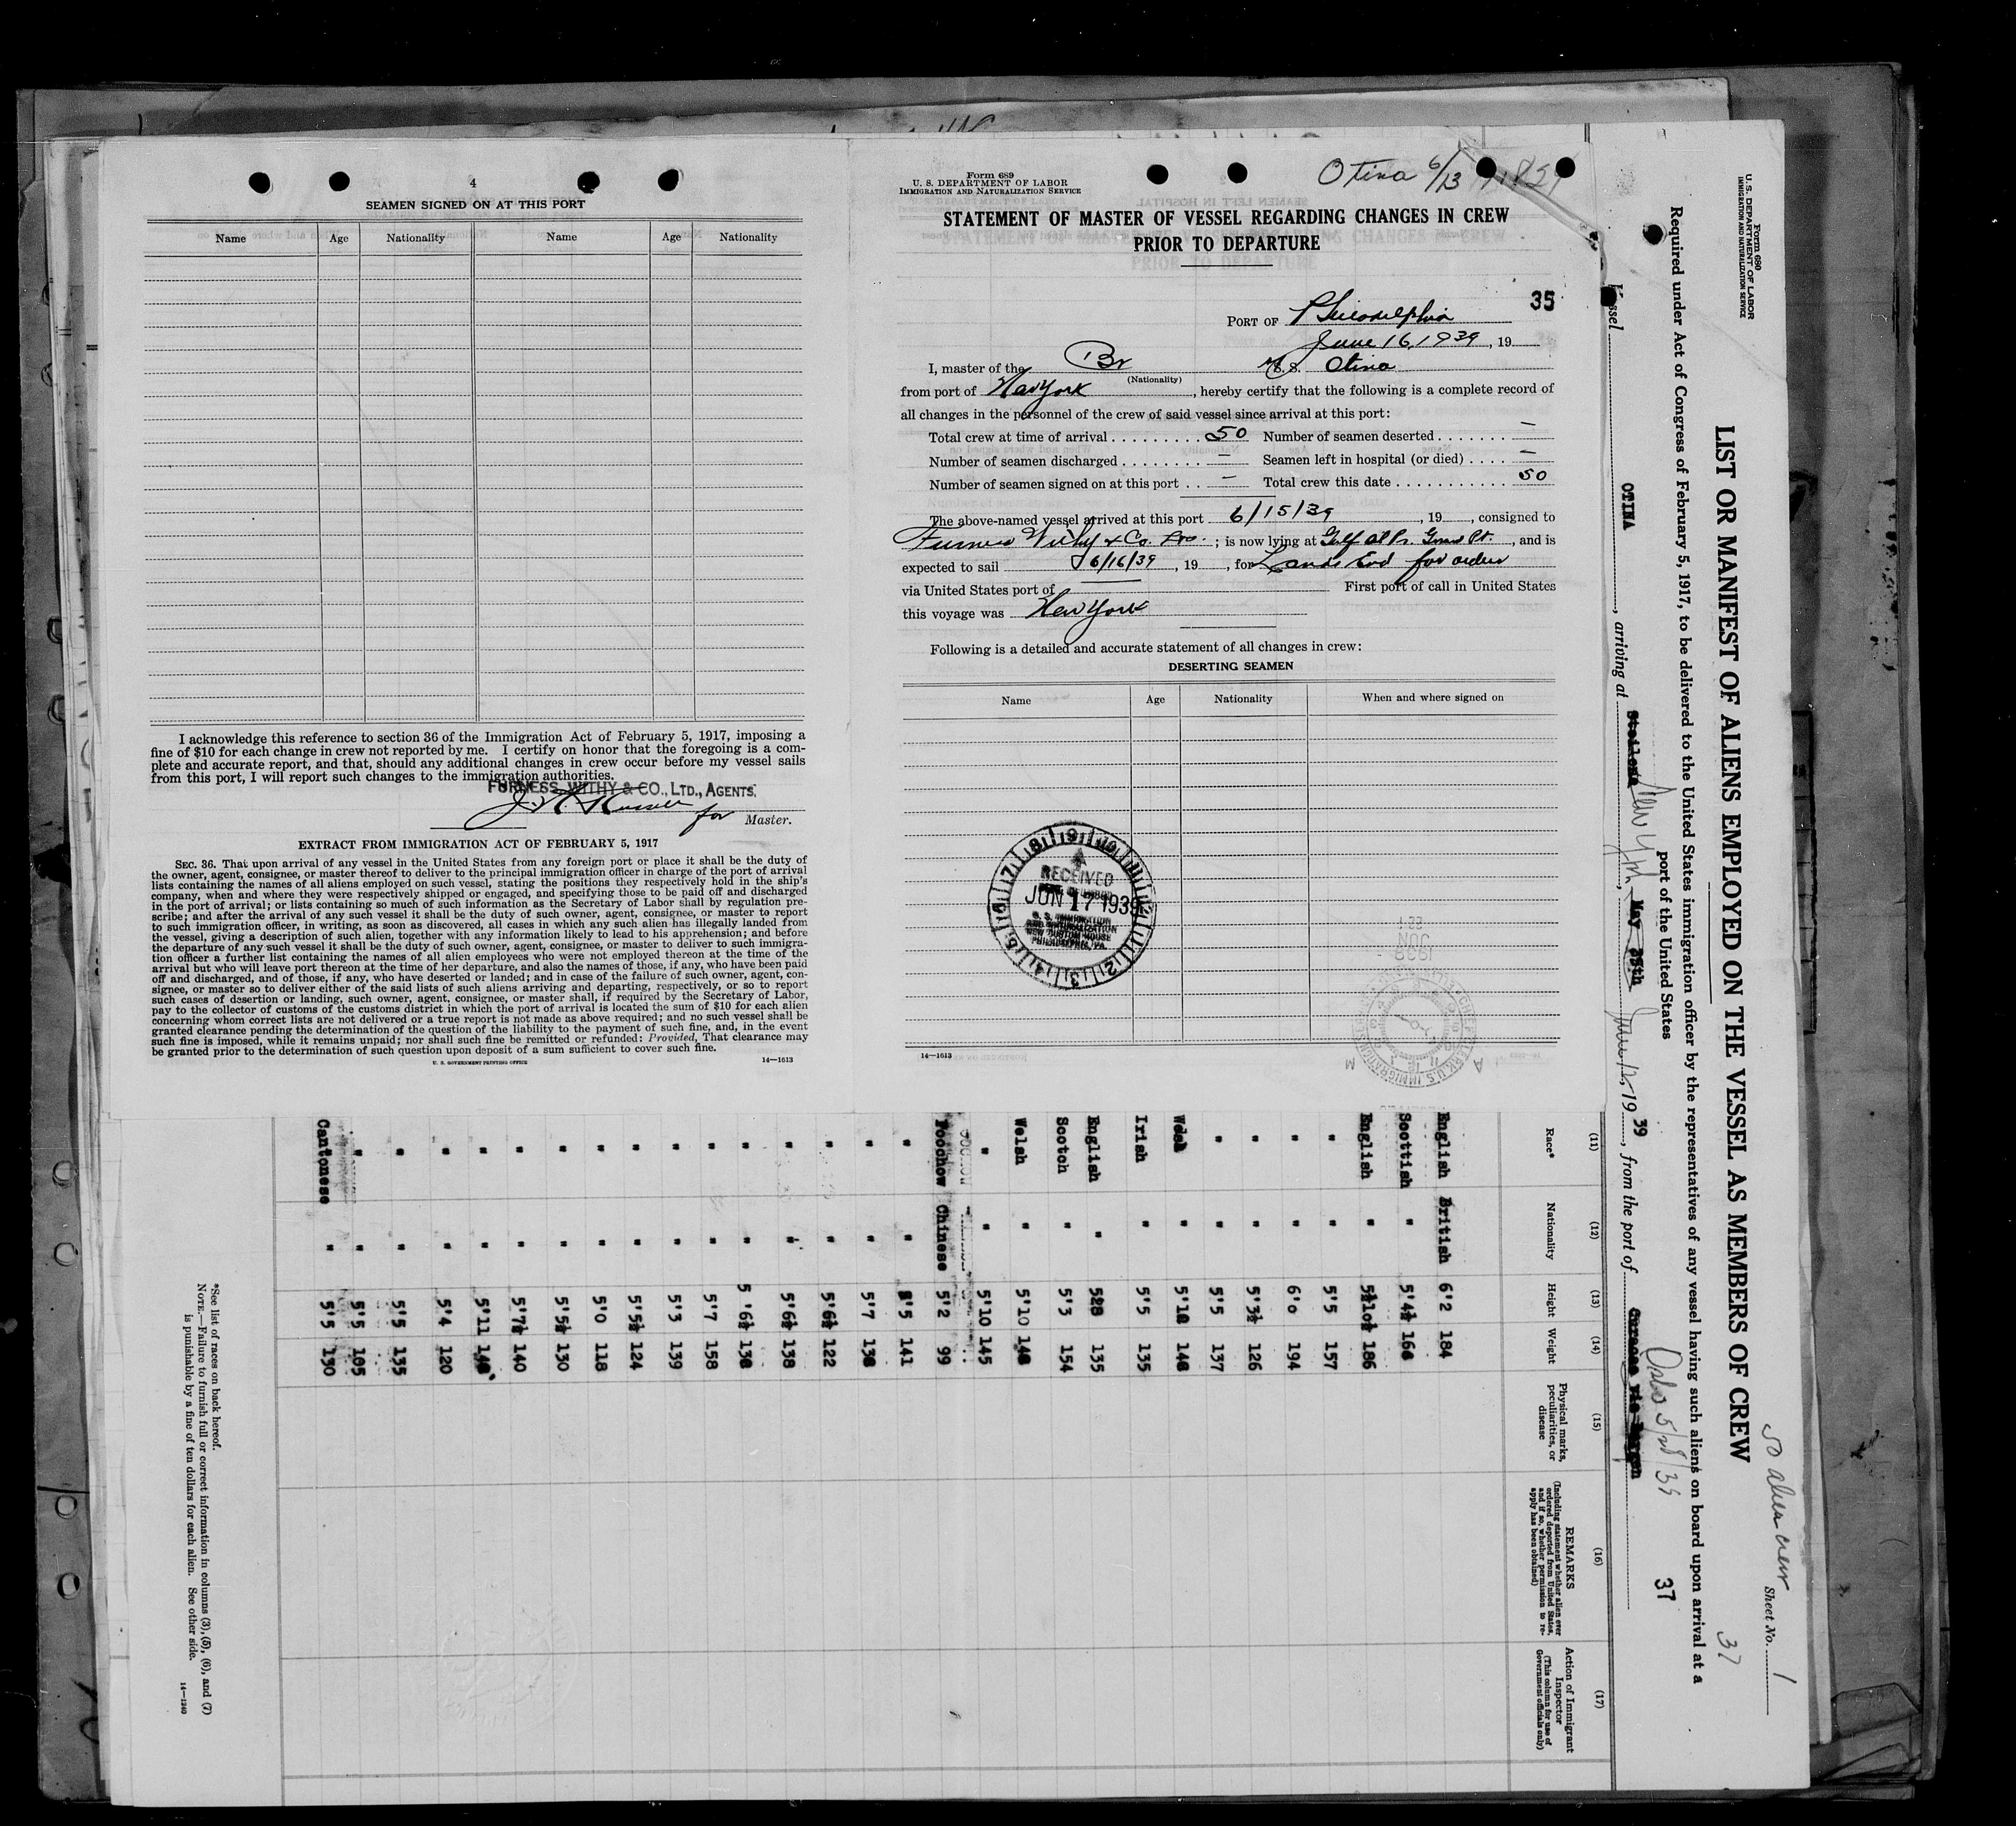 4
SEAMEN SIGNED ON AT THIS PORT
Name Age Nationality Name Age Nationality
I acknowledge this reference to section 36 of the Immigration Act of February 5, 1917, imposing a
fine of $10 for each change in crew not reported by me. I certify on honor that the foregoing is a com-
plete and accurate report, and that, should any additional changes in crew occur before my vessel sails
from this port, I will report such changes to the immigration authorities.
FURNESS, WITHY & CO., LTD., AGENTS.
for Master.
EXTRACT FROM IMMIGRATION ACT OF FEBRUARY 5, 1917
SEC. 36. That upon arrival of any vessel in the United States from any foreign port or place it shall be the duty of
the owner, agent, consignee, or master thereof to deliver to the principal immigration officer in charge of the port of arrival
lists containing the names of all aliens employed on such vessel, stating the positions they respectively hold in the ship's
company, when and where they were respectively shipped or engaged, and specifying those to be paid off and discharged
in the port of arrival; or lists containing so much of such information as the Secretary of Labor shall by regulation pre-
scribe; and after the arrival of any such vessel it shall be the duty of such owner, agent, consignee, or master to report
to such immigration officer, in writing, as soon as discovered, all cases in which any such alien has illegally landed from
the vessel, giving a description of such alien, together with any information likely to lead to his apprehension; and before
the departure of any such vessel it shall be the duty of such owner, agent, consignee, or master to deliver to such immigra-
tion officer a further list containing the names of all alien employees who were not employed thereon at the time of the
arrival but who will leave port thereon at the time of her departure, and also the names of those, if any, who have been paid
off and discharged, and of those, if any, who have deserted or landed; and in case of the failure of such owner, agent, con-
signee, or master so to deliver either of the said lists of such aliens arriving and departing, respectively, or so to report
such cases of desertion or landing, such owner, agent, consignee, or master shall, if required by the Secretary of Labor,
pay to the collector of customs of the customs district in which the port of arrival is located the sum of $10 for each alien
concerning whom correct lists are not delivered or a true report is not made as above required; and no such vessel shall be
granted clearance pending the determination of the question of the liability to the payment of such fine, and, in the event
such fine is imposed, while it remains unpaid; nor shall such fine be remitted or refunded: Provided, That clearance may
be granted prior to the determination of such question upon deposit of a sum sufficient to cover such fine.
U. S. GOVERNMENT PRINTING OFFICE 14—1613
Form 689
U. S. DEPARTMENT OF LABOR
IMMIGRATION AND NATURALIZATION SERVICE
Otina 6/13
STATEMENT OF MASTER OF VESSEL REGARDING CHANGES IN CREW
PRIOR TO DEPARTURE
35
PORT OF Philadelphia
June 16, 1939, 19
I, master of the Br M.S. Otina
(Nationality)
from port of New York, hereby certify that the following is a complete record of
all changes in the personnel of the crew of said vessel since arrival at this port:
Total crew at time of arrival 50 Number of seamen deserted —
Number of seamen discharged — Seamen left in hospital (or died) —
Number of seamen signed on at this port — Total crew this date 50
The above-named vessel arrived at this port 6/15/39, 19, consigned to
Furness Withy & Co. ; is now lying at Gulf, and is
expected to sail 6/16/39, 19, for Lands End for orders
via United States port of First port of call in United States
this voyage was New York
Following is a detailed and accurate statement of all changes in crew:
DESERTING SEAMEN
Name Age Nationality When and where signed on
RECEIVED
JUN 17 1939
U. S. IMMIGRATION
AND NATURALIZATION
NEW CUSTOM HOUSE
PHILADELPHIA, PA.
14—1613
Form 680
U. S. DEPARTMENT OF LABOR
IMMIGRATION AND NATURALIZATION SERVICE
50 alien crew
Sheet No. 1
37
LIST OR MANIFEST OF ALIENS EMPLOYED ON THE VESSEL AS MEMBERS OF CREW
Required under Act of Congress of February 5, 1917, to be delivered to the United States immigration officer by the representatives of any vessel having such aliens on board upon arrival at a
port of the United States
37
Vessel OTINA, arriving at New York, June 12, 1939, from the port of Oslo 5/28/39
(11) (12) (13) (14) (15) (16) (17)
Race* Nationality Height Weight Physical marks, peculiarities, or disease REMARKS (Including statement whether alien ever ordered deported from United States, and if so, whether permission to reapply has been obtained) Action of Immigrant Inspector (This column for use of Government officials only)
English British 6'2 184
Scottish " 5'4½ 166
English " 5'10½ 186
" " 5'5 157
" " 6'0 194
" " 5'3½ 126
" " 5'5 137
Welsh " 5'10 148
Irish " 5'5 135
English " 5'8 135
Scotch " 5'3 154
Welsh " 5'10 148
" " 5'10 145
Foochow Chinese 5'2 99
" " 5'5 141
" " 5'7 138
" " 5'6½ 122
" " 5'6½ 138
" " 5'6½ 138
" " 5'7 158
" " 5'3 139
" " 5'5½ 124
" " 5'0 118
" " 5'5½ 130
" " 5'7½ 140
" " 5'11 148
" " 5'4 120
" " 5'5 135
" " 5'5 105
Cantonese " 5'5 130
*See list of races on back hereof.
NOTE.—Failure to furnish full or correct information in columns (3), (5), (6), and (7)
is punishable by a fine of ten dollars for each alien. See other side.
14—1240